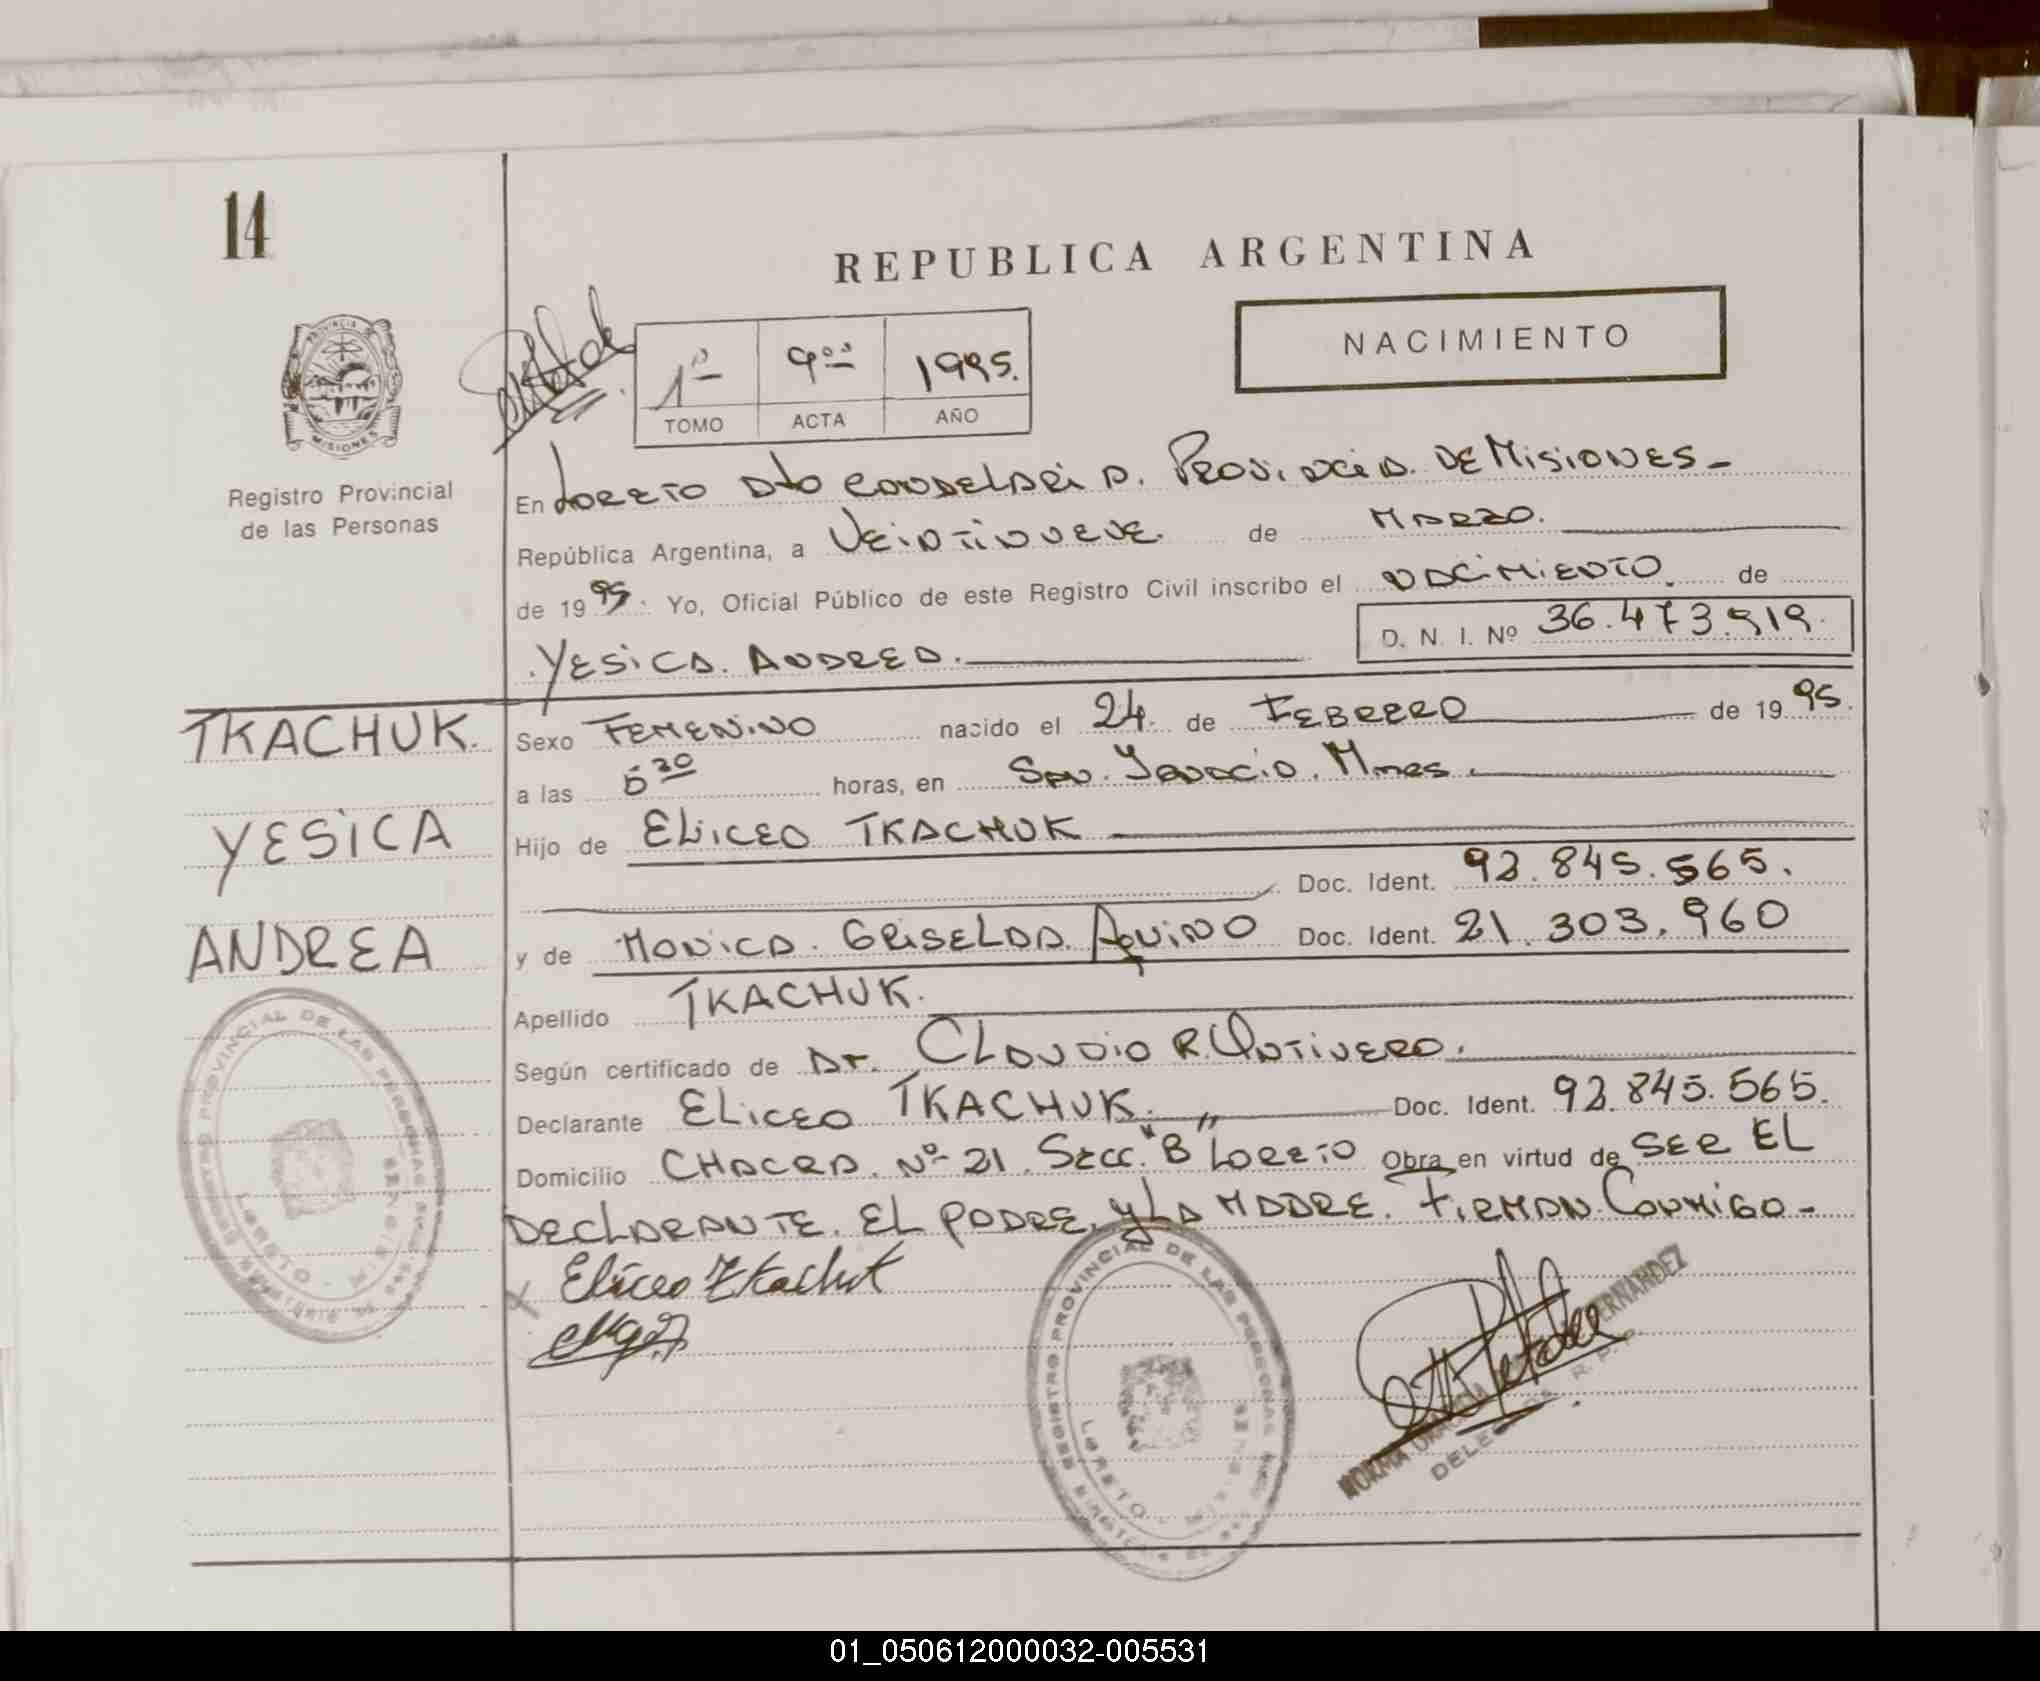 14
REPUBLICA ARGENTINA
NACIMIENTO
1º 9no 1995.
TOMO ACTA AÑO
PROVINCIA DE MISIONES
Registro Provincial
de las Personas
En Loreto Dto Candelaria. Provincia de Misiones-
República Argentina, a Veintinueve. de Marzo.
de 1995. Yo, Oficial Público de este Registro Civil inscribo el nacimiento. de
D. N. I. Nº 36.473.919.
Yesica. Andrea.
TKACHUK. Sexo Femenino nacido el 24. de Febrero de 1995.
a las 5 30 horas, en San. Ignacio. Mnes.
YESICA Hijo de Eliceo TKACHUK
Doc. Ident. 92.845.565.
ANDREA y de Monica. Griselda. Aquino Doc. Ident. 21.303.960
Apellido TKACHUK.
Según certificado de Dr. Claudio R. Ontivero.
Declarante Eliceo TKACHUK. Doc. Ident. 92.845.565.
Domicilio Chacra. Nº 21. Secc. "B" Loreto Obra en virtud de ser el
declarante. El padre, y la madre. Firman Conmigo-
Eliceo Tkachuk
REGISTRO PROVINCIAL DE LAS PERSONAS
LORETO
NORMA FERNANDEZ
01_050612000032-005531